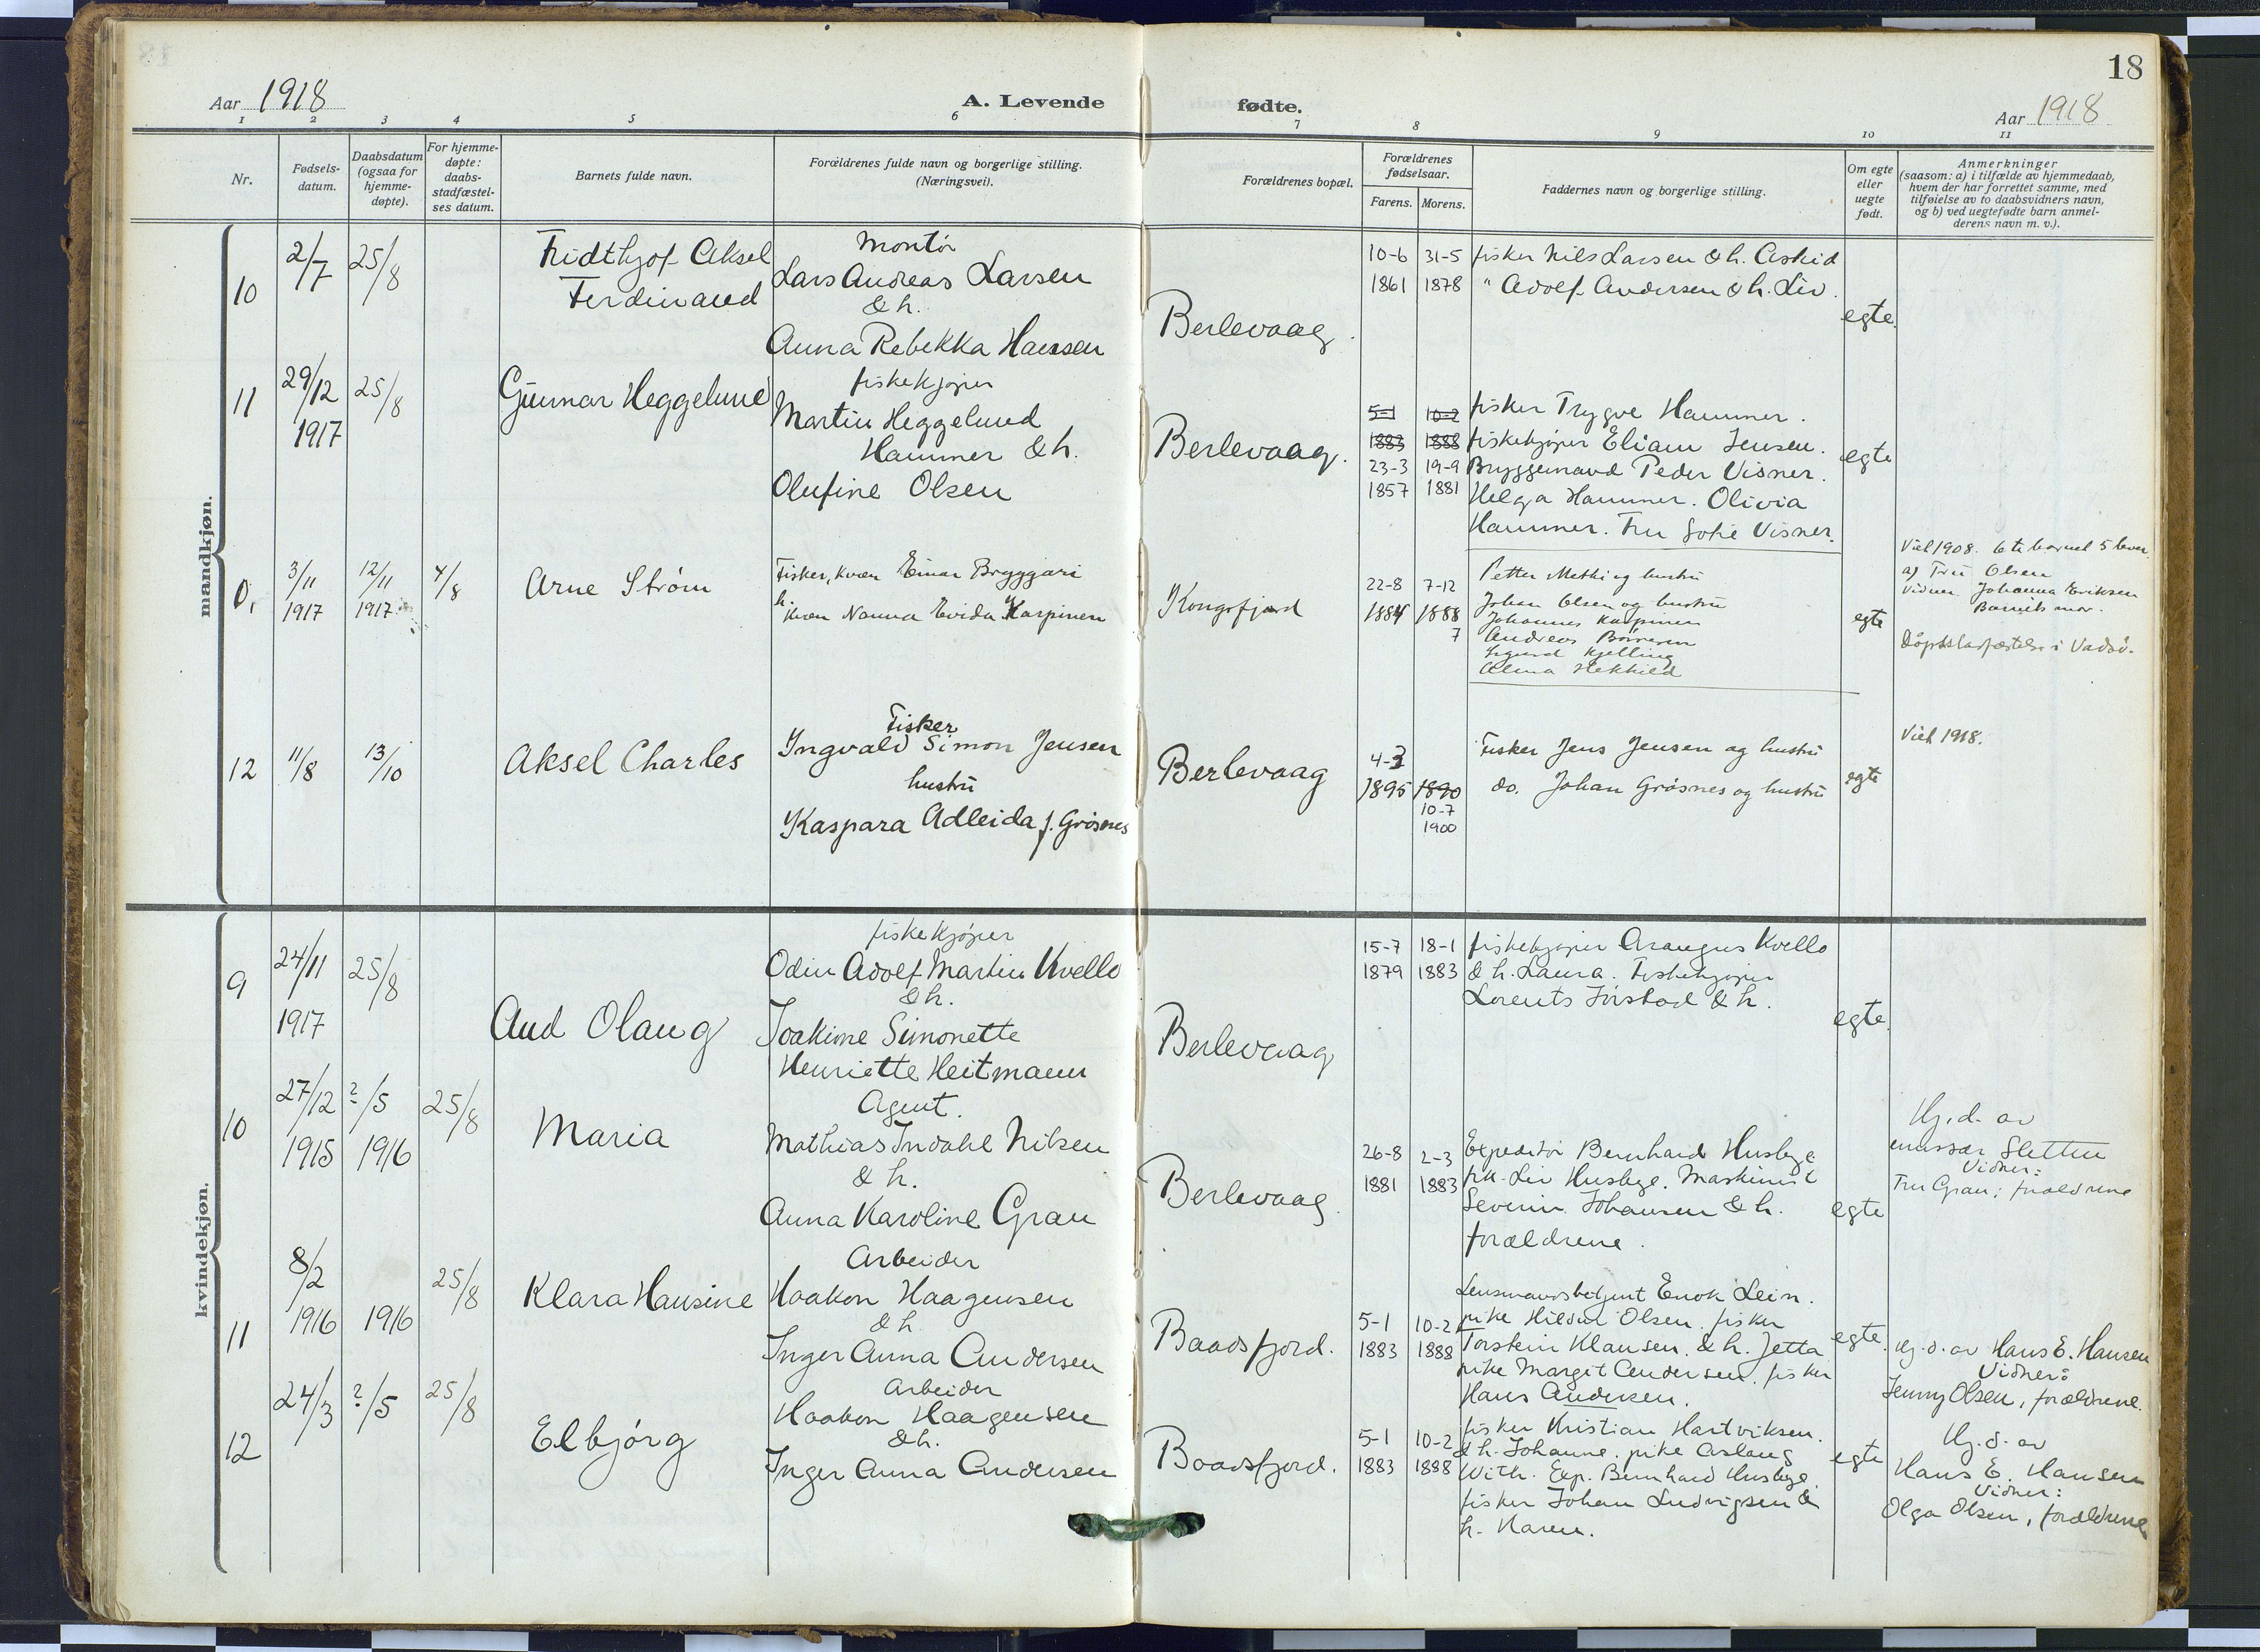 18
Aar 1918
A. Levende fødte.
Aar 1918
1 2 3 4 5 6 7 8 9 10 11
Nr.
Fødsels-
datum.
Daabsdatum
(ogsaa for
hjemme-
døpte).
For hjemme-
døpte:
daabs-
stadfæstel-
ses datum.
Barnets fulde navn.
Forældrenes fulde navn og borgerlige stilling.
(Næringsvei).
Forældrenes bopæl.
Forældrenes
fødselsaar.
Farens. Morens.
Faddernes navn og borgerlige stilling.
Om egte
eller
uegte
født.
Anmerkninger
(saasom: a) i tilfælde av hjemmedaab,
hvem der har forrettet samme, med
tilføielse av to daabsvidners navn,
og b) ved uegtefødte barn anmel-
derens navn m. v.).
mandkjøn.
10
2/7
25/8
Fridthjof Aksel
Ferdinand
Montør
Lars Andreas Larsen
& h.
Anna Rebekka Hansen
Berlevaag.
10-6
1861
31-5
1878
fisker Nils Larsen & h. Astrid
" Adolf Andersen & h. Liv.
egte.
11
29/12
1917
25/8
Gunnar Heggelund
fiskekjøper
Martin Heggelund
Hammer & h.
Olufine Olsen
Berlevaag.
5-1
1883
23-3
1857
10-2
1888
19-9
1881
fisker Trygve Hammer.
fiskekjøper Eliam Jensen.
Bryggemand Peder Visner.
Helga Hammer. Olivia
Hammer. Fru Sofie Visner.
egte
0,
3/11
1917
12/11
1917
4/8
Arne Strøm
Fisker, kvæn Einar Bryggari
h.
kvæn Nanna Evida Karpinen
Kongsfjord
22-8
1884
7-12
1888
7
Petter Methi og hustru
Johan Olsen og hustru
Johannes Karpinen
Andreas
Sigurd Kjelling
Alma
egte
Viet 1908. 6te barnet 5 lever.
af Fru Olsen
Vidner Johanna Eriksen
Barnets mor.
i Vadsø.
12
11/8
13/10
Aksel Charles
Fisker
Ingvald Simon Jensen
hustru
Kaspara Adleida f. Grøsnes
Berlevaag
4-3
1895
1890
10-7
1900
Fisker Jens Jensen og hustru
do. Johan Grøsnes og hustru
egte
Viet 1918.
kvindekjøn.
9
24/11
1917
25/8
Aud Olaug
fiskekjøper
Odin Adolf Martin Kvello
& h.
Joakime Simonette
Henriette Heitmann
Berlevaag
15-7
1879
18-1
1883
fiskekjøper Kvello
& h. Laura. Fiskekjøper
Lorents Jørstad & h.
egte.
10
27/12
1915
?/5
1916
25/8
Maria
Agent.
Mathias Indahl Nilsen
& h.
Anna Karoline Grau
Berlevaag.
26-8
1881
2-3
1883
Expeditør Bernhard Husbye
frk. Liv Husbye. Maskinist
Severin Johansen & h.
forældrene.
egte
Hj. d. av
Sletten
Vidner:
Fru Grau; forældrene
11
8/2
1916
1916
25/8
Klara Hansine
Arbeider
Haakon Haagensen
& h
Inger Anna Andersen
Baadsfjord.
5-1
1883
10-2
1888
Lensmandsbetjent Enok Lein.
pike Hildur Olsen. fisker
Torstein Klausen. & h. Jetta
pike Margit Andersen. fisker
Hans Andersen.
egte.
Hj. d. av Hans E. Hansen
Vidner:
Jenny Olsen, forældrene.
12
24/3
?/5
25/8
Elbjørg
Arbeider
Haakon Haagensen
& h.
Inger Anna Andersen
Baadsfjord.
5-1
1883
10-2
1888
fisker Kristian Hartviksen.
& h. Johanne. pike Aslaug
With. Exp. Bernhard Husbye
fisker Johan Ludvigsen &
h. Karen.
egte
Hj. d. av
Hans E. Hansen
Vidner:
Olga Olsen, forældrene